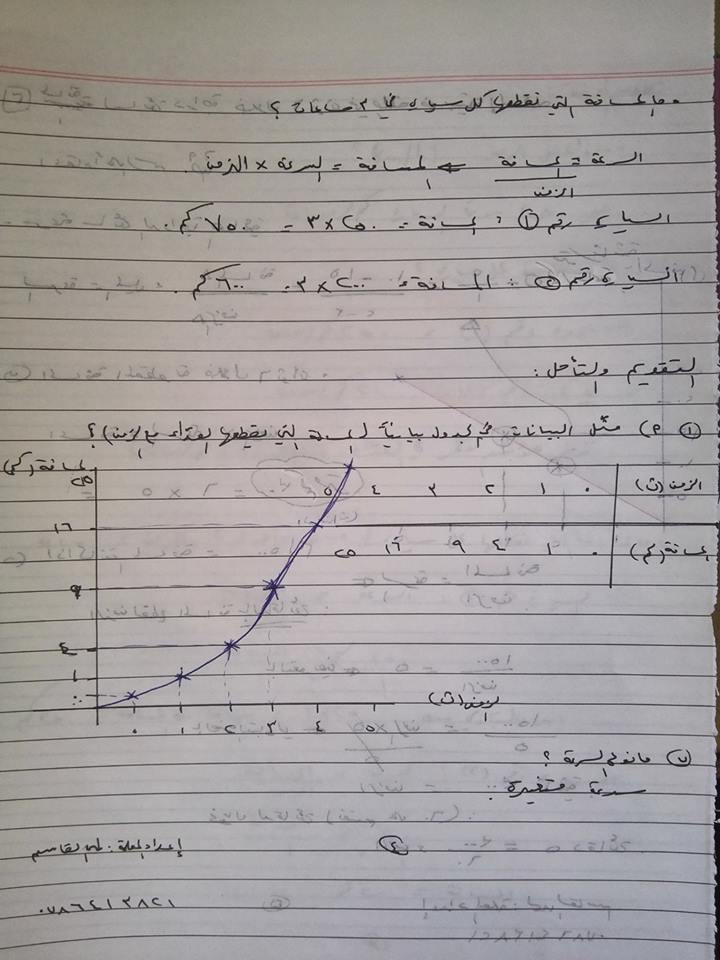 ما المسافة التي تقطعها كل سيارة في ٣ ساعات ؟
السرعة = المسافة / الزمن ← المسافة = السرعة × الزمن.
السيارة رقم ① : المسافة = ٢٥٠ × ٣ = ٧٥٠ كم.
السيارة رقم ② : المسافة = ٢٠٠ × ٣ = ٦٠٠ كم.
التقويم والتأمل :
① P) مثّل البيانات في الجدول بيانياً (المسافة التي يقطعها العداء مع الزمن) ؟
الزمن (ث) ٠ ١ ٢ ٣ ٤ ٥
المسافة (كم) ٠ ١ ٤ ٩ ١٦ ٢٥
المسافة (كم)
٢٥
١٦
٩
٤
١
٠
٠ ١ ٢ ٣ ٤ ٥
الزمن (ث)
ب) ما نوع السرعة ؟
سرعة متغيرة.
إعداد المعلمة : لمى القاسم
④
٠٧٨٦٤١٣٨٢١